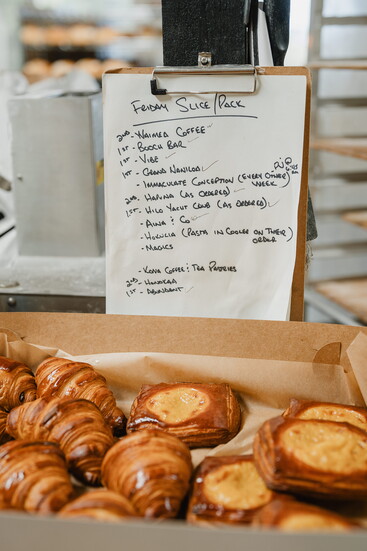 Friday Slice/Pack
2nd - Waimea Coffee ✓
1st - Booch Bar ✓
1st - Vibe ✓
1st - Grand Naniloa ✓
- Immaculate Conception (Every Other Week
2nd - Hapuna (as ordered) ✓
1st - Hilo Yacht Club (as ordered) ✓
- Aina & Co ✓
- Hokulia (Pasta in cooler on their order)
- Magics
- Kona Coffee & Tea Pastries
2nd - Honokaa
1st - Abundant ✓